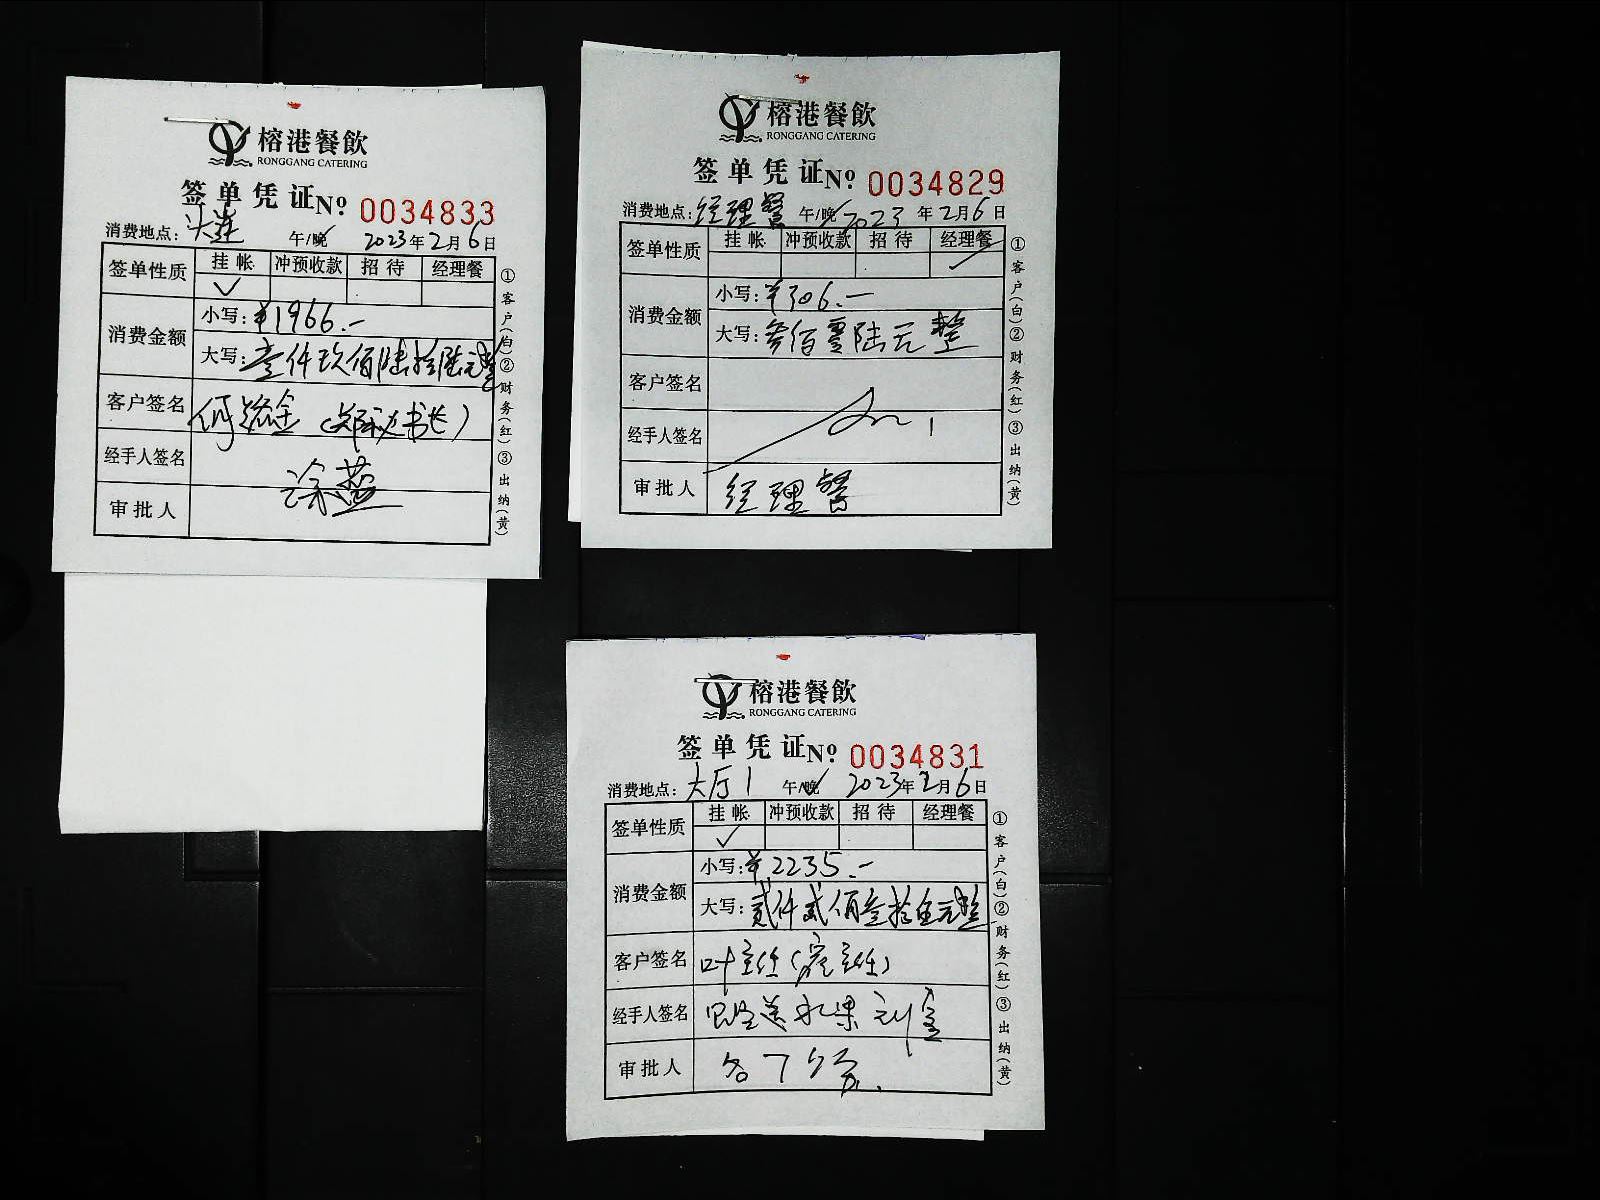 榕港餐飲
RONGGANG CATERING
签单凭证 No 0034833
消费地点: 大连 午/晚 2023年2月6日
签单性质 挂帐 冲预收款 招待 经理餐
✓
消费金额 小写: ¥1966.-
大写: 壹仟玖佰陆拾陆元整
客户签名 (郑秘书长)
经手人签名 涂燕
审批人
①客户(白)②财务(红)③出纳(黄)
榕港餐飲
RONGGANG CATERING
签单凭证 No 0034829
消费地点: 经理餐 午/晚 2023年2月6日
签单性质 挂帐 冲预收款 招待 经理餐
✓
消费金额 小写: ¥306.-
大写: 叁佰零陆元整
客户签名
经手人签名
审批人 经理餐
①客户(白)②财务(红)③出纳(黄)
榕港餐飲
RONGGANG CATERING
签单凭证 No 0034831
消费地点: 大厅1 午/晚 2023年2月6日
签单性质 挂帐 冲预收款 招待 经理餐
✓
消费金额 小写: ¥2235.-
大写: 贰仟贰佰叁拾伍元整
客户签名 叶主任(主任)
经手人签名 送水果
审批人 各7份
①客户(白)②财务(红)③出纳(黄)